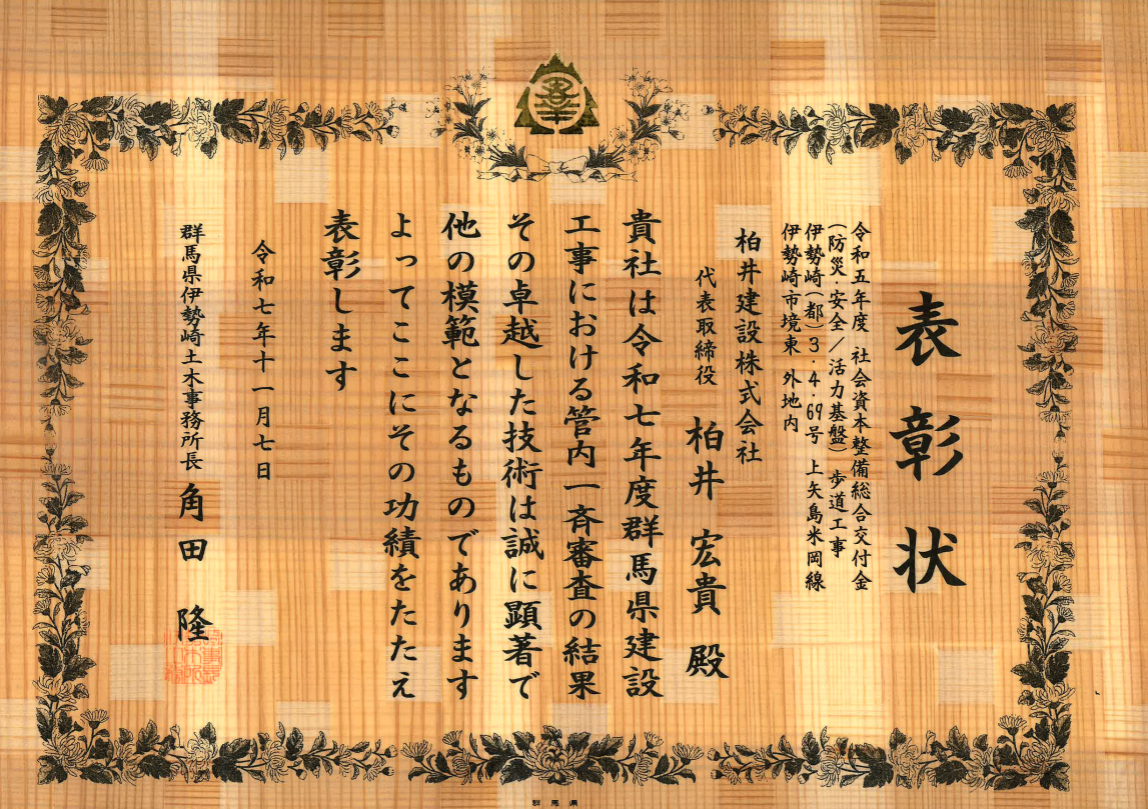 表彰状
令和五年度 社会資本整備総合交付金
(防災・安全/活力基盤)歩道工事
伊勢崎(都)3・4・69号 上矢島米岡線
伊勢崎市境東 外地内
柏井建設株式会社
代表取締役 柏井 宏貴 殿
貴社は令和七年度群馬県建設
工事における管内一斉審査の結果
その卓越した技術は誠に顕著で
他の模範となるものであります
よってここにその功績をたたえ
表彰します
令和七年十一月七日
群馬県伊勢崎土木事務所長 角田 隆
群馬県